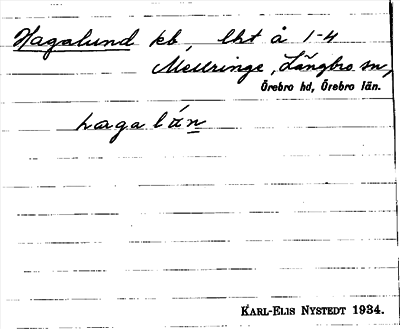 Hagalund kb, lht å 1-4
Mellringe, Längbro sn,
Örebro hd, Örebro län.
hagalún
KARL-ELIS NYSTEDT 1934.